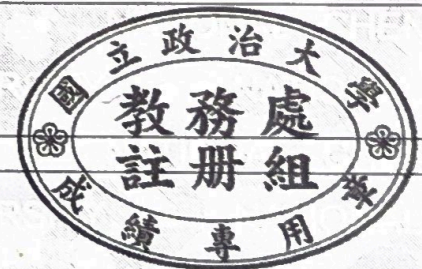 國立政治大學
教務處
註册組
成績專用章